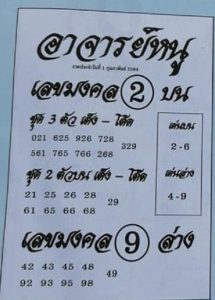 อาจารย์หนู
งวดประจำวันที่ 1 กุมภาพันธ์ 2564
เลขมงคล 2 บน
ชุด 3 ตัว เต็ง - โต๊ด
021 625 926 728
561 765 766 268
329
เด่นบน
2 - 6
ชุด 2 ตัวบน เต็ง - โต๊ด
21 25 26 28
61 65 66 68
29
เด่นล่าง
4 - 9
เลขมงคล 9 ล่าง
42 43 45 48
92 93 95 98
49